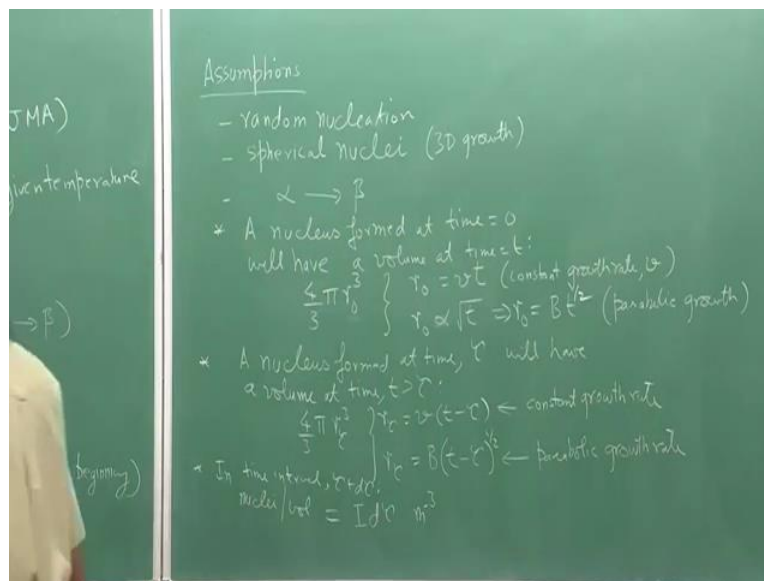 JMA)
given temperature
→ β)
beginning)
Assumptions
- random nucleation
- spherical nuclei (3D growth)
- α → β
* A nucleus formed at time = 0
will have a volume at time = t:
4/3 π r₀³ } r₀ = vt (constant growth rate, v)
r₀ ∝ √t ⇒ r₀ = B t^1/2 (parabolic growth)
* A nucleus formed at time, τ will have
a volume at time, t > τ:
4/3 π r_τ³ } r_τ = v(t-τ) ← constant growth rate
r_τ = B(t-τ)^1/2 ← parabolic growth rate
* In time interval, τ+dτ:
nuclei/vol = I dτ m⁻³